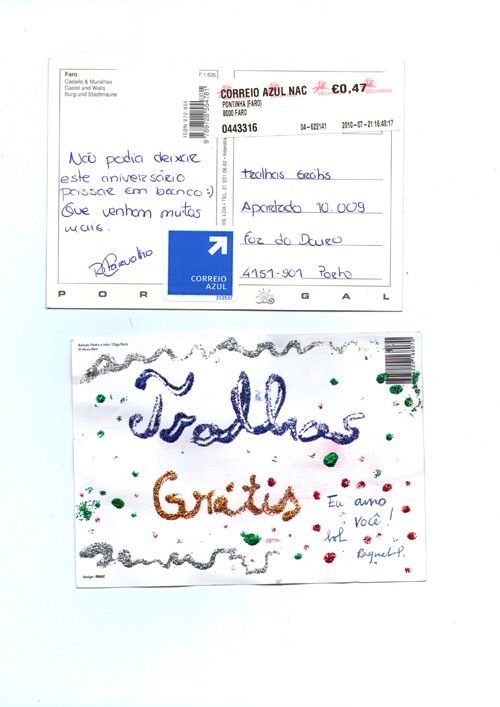 Faro
Castelo & Muralhas
Castel and Walls
Burg und Stadtmauer
F 1 626
CORREIO AZUL NAC €0,47
PONTINHA (FARO)
8000 FARO
0443316 04-622141 2010-07-21 16:48:17
Não podia deixar
este aniversário
passar em branco :)
Que venham muitas
mais.
R. Carvalho
CORREIO
AZUL
212537
Tralhas Grátis
Apartado 10.009
Foz do Douro
4151-901 Porto
POR GAL
Bailado Pedro e Inês / Olga Roriz
Tralhas
Grátis
Eu amo
você!
lol
Raquel P.
design: INHAC